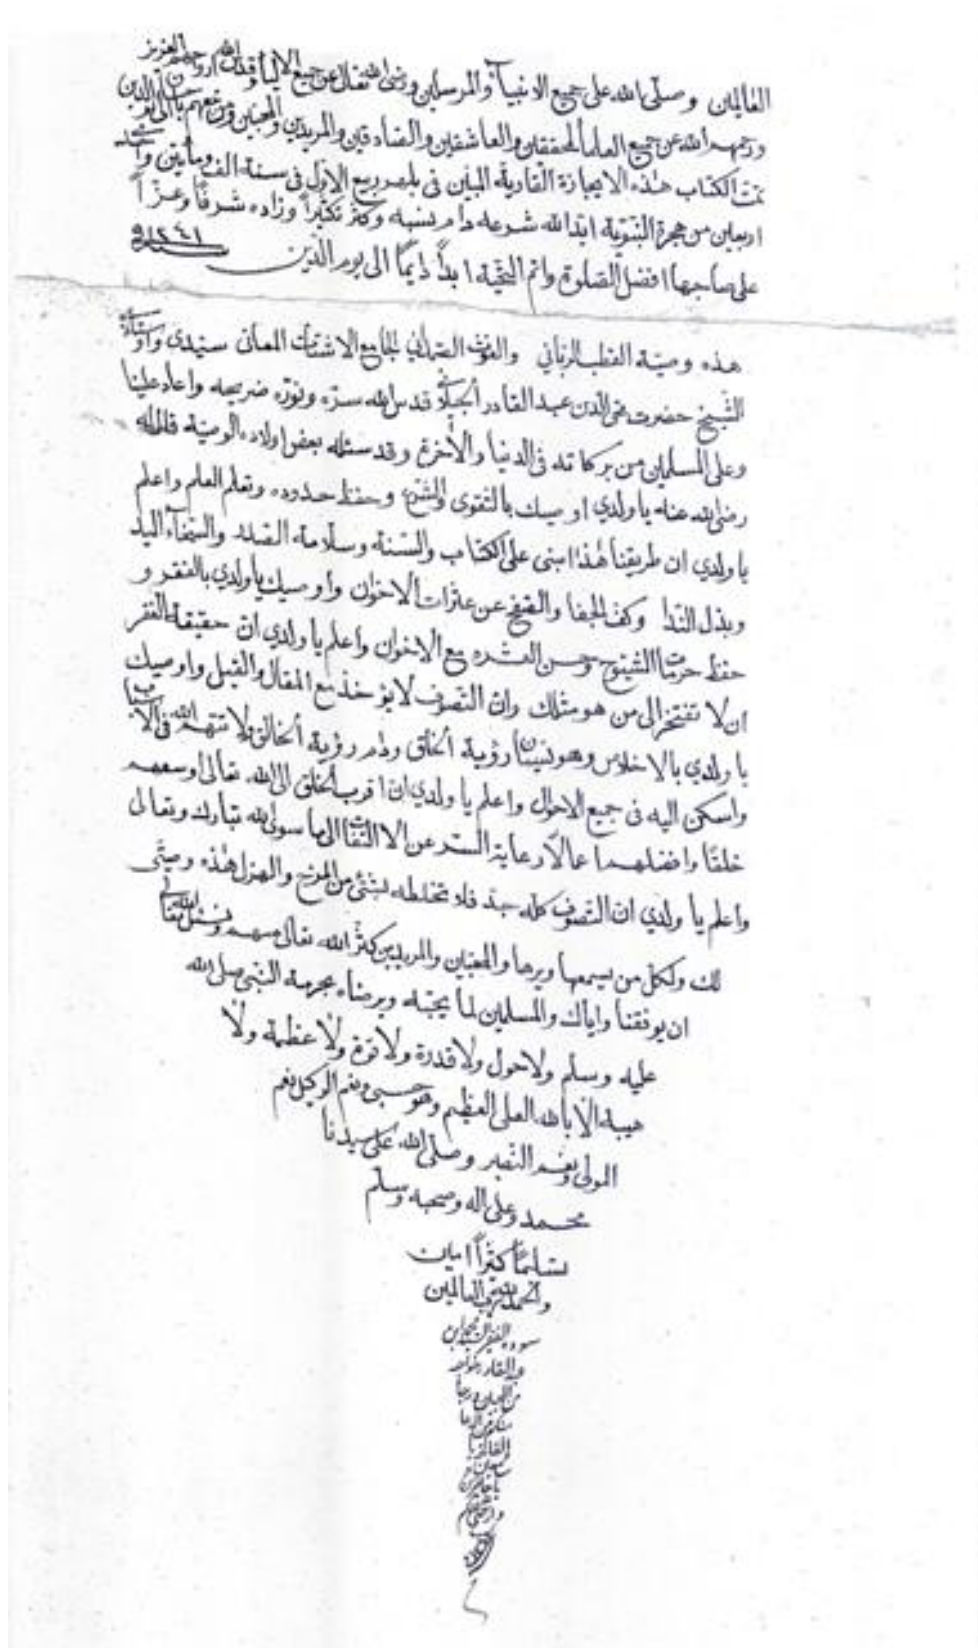 العالمين وصلى الله على جميع الانبيآء والمرسلين ورضى الله تعالى عن جميع الاوليآء وقدس الله ارواحهم العزيز
ورحمهم الله عن جميع العلمآ المحققين والعاشقين والصادقين والمريدين والمحبين ومن تبعهم الى يوم الدين
تمت الكتاب هذه الاجازة القادرية المبين فى شهر ربيع الاول فى سنة الف ومأتين واحد
اربعين من هجرة النبوية ايد الله شرعه دام بسببه وكثر تكثيراً وزاده شرفاً وعزاً
على صاحبها افضل الصلوة واتم التحية ابداً دايماً الى يوم الدين ١٢٤١
هذه وصية القطب الربانى والغوث الصمدانى الجامع الاشتات المعانى سيدى واوستادى
الشيخ حضرت محى الدين عبد القادر الجيلانى قدس الله سره ونوره ضريحه واعاد علينا
وعلى المسلمين من بركاته فى الدنيا والأخرة وقد سئله بعض اولاده الوصية فقال له
رضى الله عنه يا ولدي اوصيك بالتقوى والشرع وحفظ حدوده وتعلم العلم واعلم
يا ولدي ان طريقنا هذا مبنى على الكتاب والسنة وسلامة الصدر والسخآء اليد
وبذل الندا وكف الجفا والصفح عن عثرات الاخوان واوصيك يا ولدي بالفقر و
حفظ حرمات الشيوخ وحسن العشره مع الاخوان واعلم يا ولدي ان حقيقة الفقر
ان لا تفتخر الى من هو مثلك وان التصوف لا يؤخذ مع المقال والقيل واوصيك
يا ولدي بالاخلاص وهو نسيان رؤية الخلق ودام رؤية الخالق ولا تتهم الله فى الاسباب
واسكن اليه فى جميع الاحوال واعلم يا ولدي ان اقرب الخلق الى الله تعالى اوسعهم
خلقا وافضلهما عمالاً رعاية السر عن الالتفات الى ما سوى الله تبارك وتعالى
واعلم يا ولدي ان التصوف كله جد فلا تخلطه بشئ من المزح والهزل هذه وصيتى
لك ولكل من يسمعها ويرها والمحبين والمريدين كثر الله تعالى منهم ونسئل الله تعالى
ان يوفقنا واياك والمسلمين لما يحبه ويرضاه بحرمة النبى صلى الله
عليه وسلم ولا حول ولا قدرة ولا قوة ولا عظمة ولا
هيبة الا بالله العلى العظيم وهو حسبى ونعم الوكيل نعم
المولى ونعم النصير وصلى الله على سيدنا
محمد وعلى اله وصحبه وسلم
تسليماً كثراً امين
والحمد لله رب العالمين